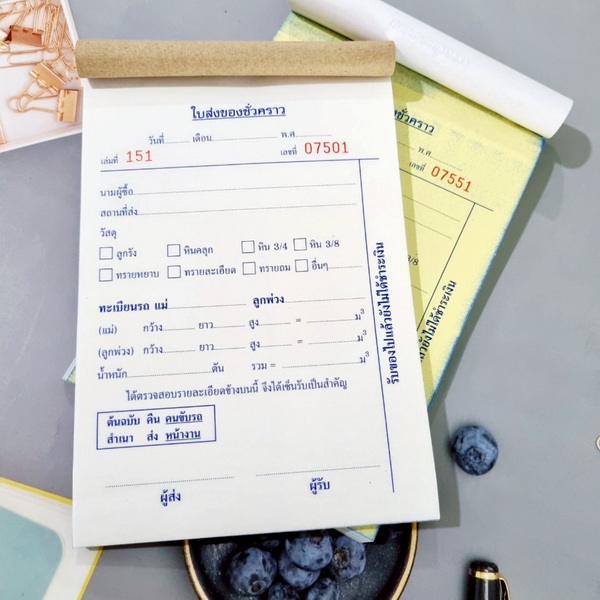 ใบส่งของชั่วคราว
วันที่.......... เดือน.................... พ.ศ................
เล่มที่ 151 เลขที่ 07501
นามผู้ซื้อ
สถานที่ส่ง
วัสดุ
ลูกรัง หินคลุก หิน 3/4 หิน 3/8
ทรายหยาบ ทรายละเอียด ทรายถม อื่นๆ
ทะเบียนรถ แม่ ลูกพ่วง
(แม่) กว้าง ยาว สูง = ม3
(ลูกพ่วง) กว้าง ยาว สูง = ม3
น้ำหนัก ตัน รวม = ม3
ได้ตรวจสอบรายละเอียดข้างบนนี้ จึงได้เซ็นรับเป็นสำคัญ
ต้นฉบับ คืน คนขับรถ
สำเนา ส่ง หน้างาน
ผู้ส่ง ผู้รับ
รับของไปแล้วยังไม่ได้ชำระเงิน
ชั่วคราว
พ.ศ.
เลขที่ 07551
หิน 3/8
ยังไม่ได้ชำระเงิน